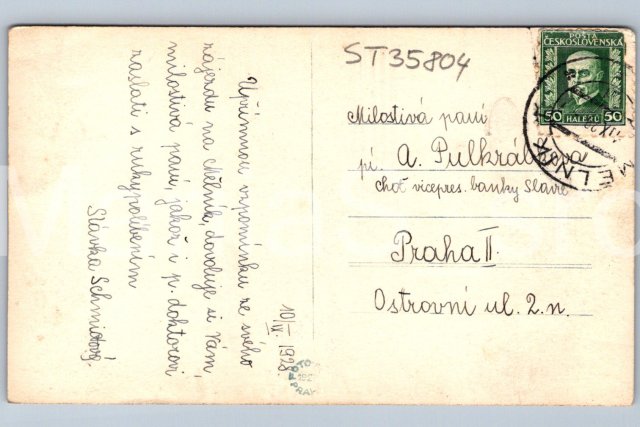 ST35804
POŠTA
ČESKOSLOVENSKÁ
50 HALÉŘŮ 50
MĚLNÍK
Milostivá paní
pí. A. Pulkrábkova
choť vicepres. banky Slavie
Praha II.
Ostrovní ul. 2.n.
10/IX. 1928.
Upřímnou vzpomínku ze svého
zájezdu na Mělník, dovoluje si Vám
milostivá paní, jakož i p. doktorovi
zaslati s rukypolíbením
Slávka Schmidtová.
FOTO
PRAHA